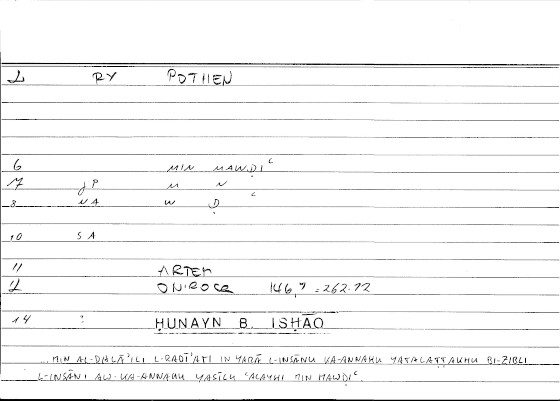 1 RY POTHEN
6 MIN MAWḌIʿ
7 JP M N
8 NA W Ḍ ʿ
10 SA
11 ARTEM
2 ONIROCR 146,7 = 262.12
14 : ḤUNAYN B. ISḤĀQ
...MIN AL-DALĀʾILI L-RADĪʾATI IN YARĀ L-INSĀNU KA-ANNAHU YATALAṬṬAKHU BI-ZIBLI
L-INSĀNI AW KA-ANNAHU YASĪLU ʿALAYHI MIN MAWḌIʿ